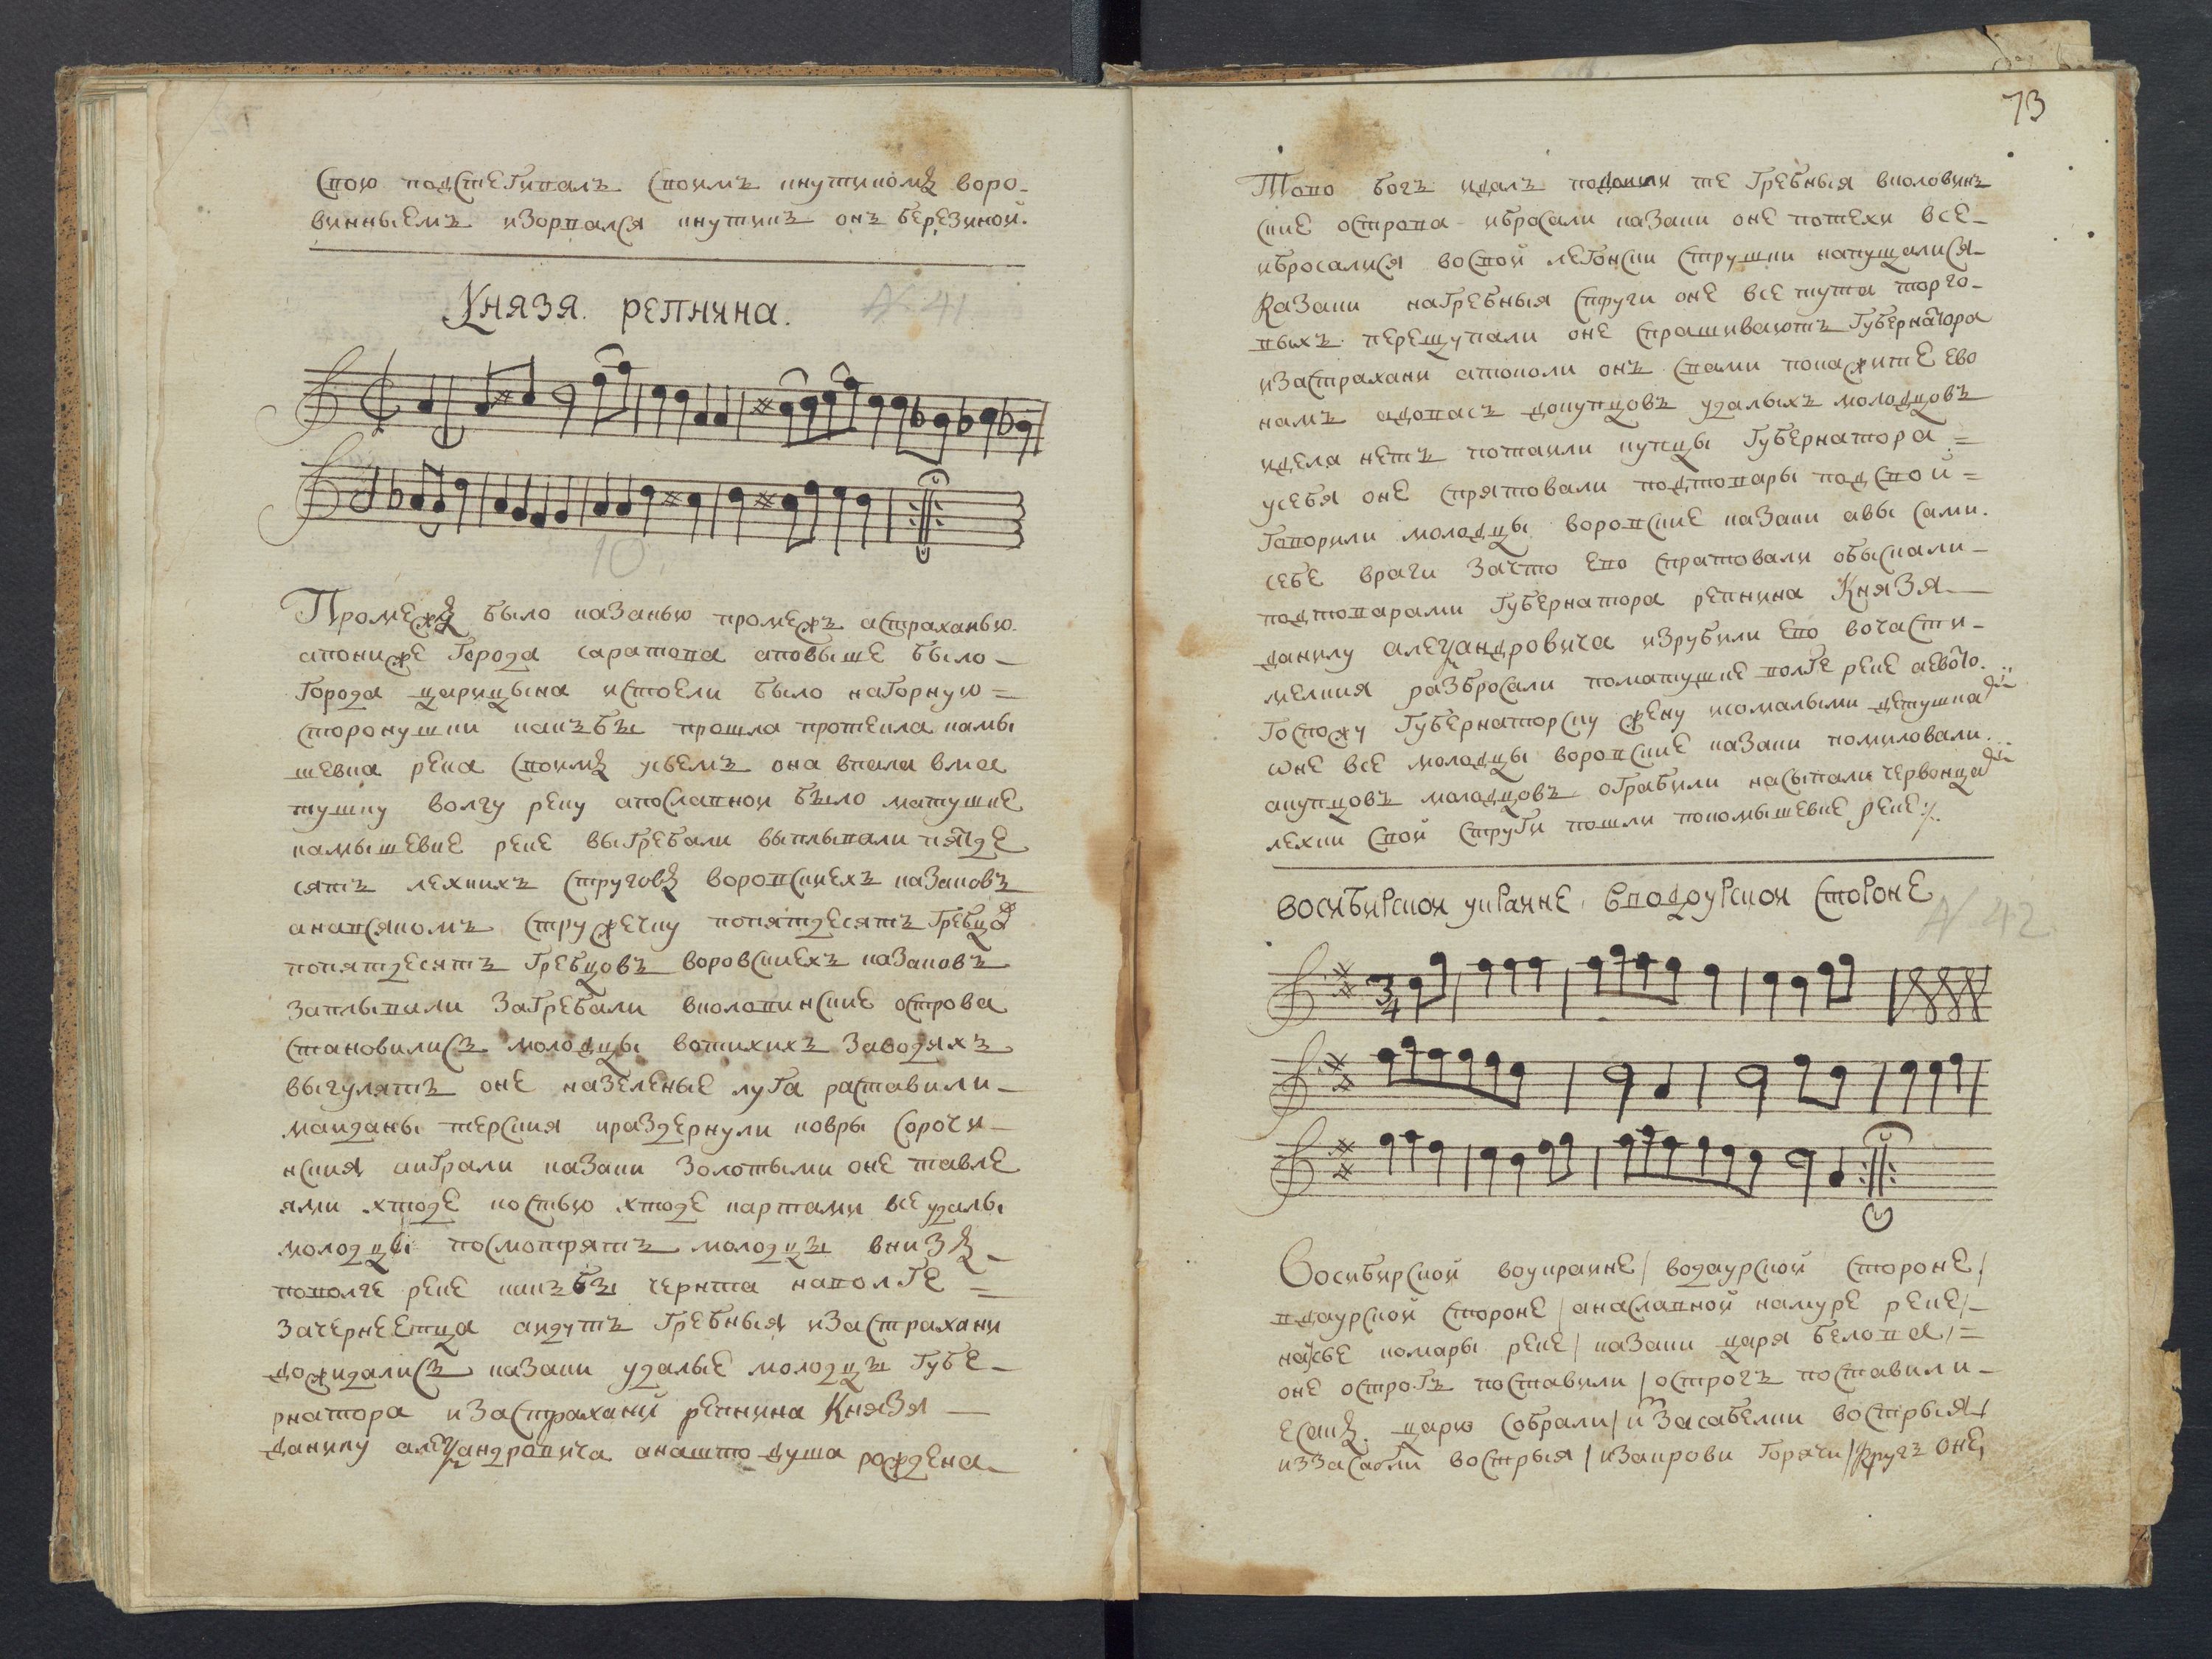 свою подстегивалъ своимъ кнутикомъ воро-
винныемъ изорвался кнутикъ онъ березиной.
Князя. репнина.
№ 41
10.
Промежъ было казанью промежъ астраханью.
апониже города саратова аповыше было-
города царицына истоели было нагорную=
сторонушки какъ бы прошла протекла камы
шевка река своимъ усьемъ она впала вма
тушку волгу реку апославной было матушке
камышевке реке выгребали выплывали пядде
сятъ лехкихъ струговъ воровскиехъ казаковъ
анавсякомъ стружечку попятдесятъ гребцов
попятдесятъ гребцовъ воровскиехъ казаковъ
заплывали загребали вколовинские острова
становилисъ молодцы вотихихъ заводяхъ
выгулятъ оне назеленые луга раставили-
маиданы терския ираздернули ковры сорочи-
нския аиграли казаки золотыми оне тавле
ями хтоде костью хтоде картами все удалы
молодцы посмотрятъ молодцы внизъ
поволге реке какъ бы чернта наволге=
зачернеетца аидутъ гребныя изастрахани
дожидалисъ казаки удалые молодцы губе-
рнатора изастрахани репнина князя
данилу александровича анашто душа рождена-
73
Тово богъ идалъ подошли те гребныя вколовинъ
ские острова ибросали казаки оне потехи все-
ибросалися восвои легонски стружки напущалися-
казаки нагребныя струги оне все тута торго-
выхъ перещупали оне спрашиваютъ губернатора
изастрахани атоколи онъ свами покажите ево
намъ адовасъ докупцовъ удалыхъ молодцовъ
идела нетъ потаили купцы губернатора=
усебя оне спрятовали подтовары подсвои=
говорили молодцы воровские казаки авы сами.
себе враги зачто ево спратовали обыскали-
подтоварами губернатора репнина князя
данилу александровича изрубили ево вочасти-
мелкия разбросали поматушке волге реке аево то.
госпожу губернаторску жену исомалыми детушка ми
оне все молодцы воровские казаки помиловали.
акупцовъ молодцовъ ограбили насыпали червонца ми
лехки свои струги пошли покомышевке реке:/.
восибирской украине, вподоурской стороне
№ 42
Восибирской воукраине/ водаурской стороне/
вдаурской стороне/ анаславной намуре реке/-
наусье комары реке/ казаки царя белова/=
оне острогъ поставили/ острогъ поставили-
есакъ. царю собрали/ изъ засабелки вострыя/
иззасабли вострыя/ изакрови горячи/ кругъ оне,